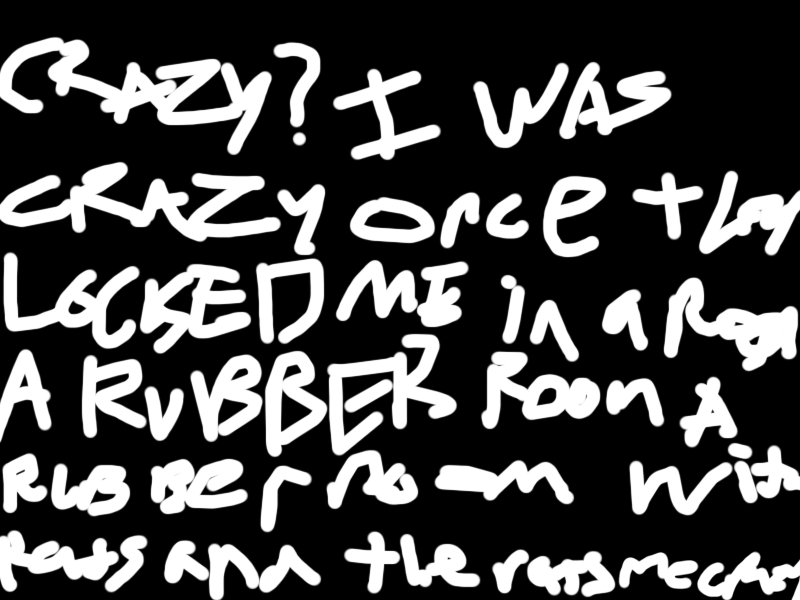 CRAZY? I WAS
CRAZY once they
LOCKED ME in a Room
A RUBBER Room A
RUBBER room with
Rats and the rats me crazy